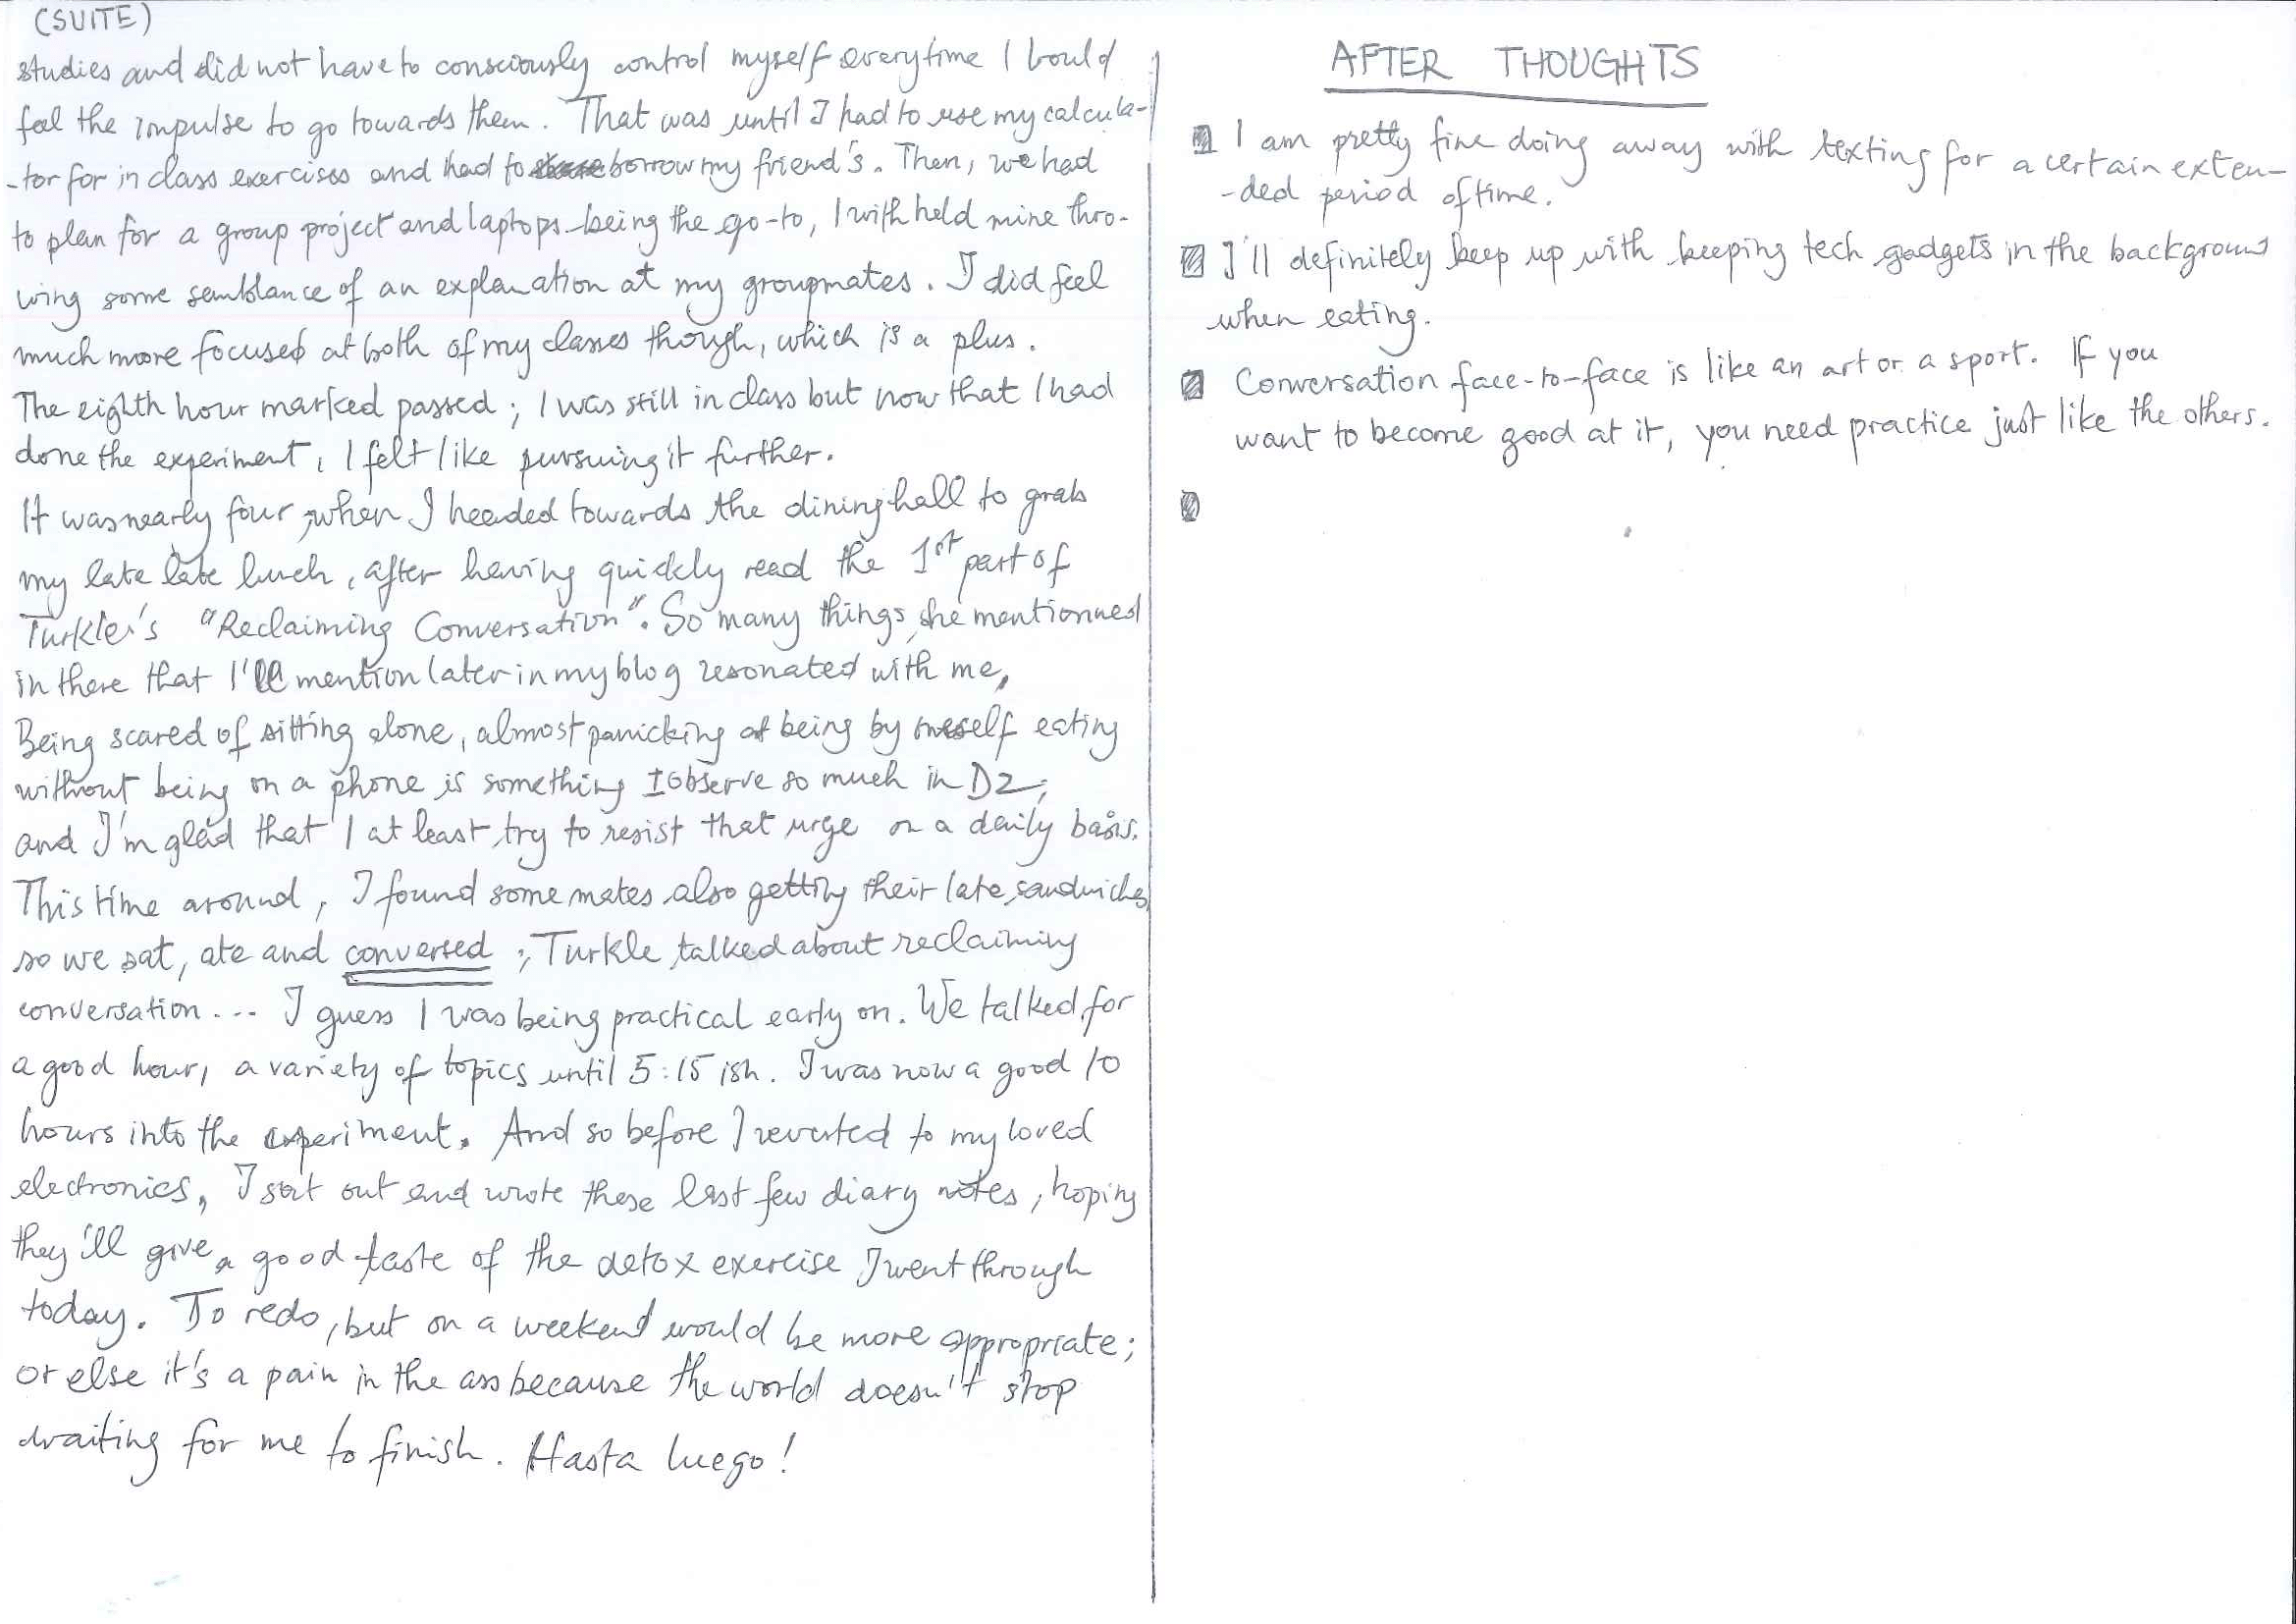 (SUITE)
studies and did not have to consciously control myself everytime I would
feel the impulse to go towards them. That was until I had to use my calcula-
-tor for in class exercises and had to borrow my friend's. Then, we had
to plan for a group project and laptops being the go-to, I withheld mine thro-
wing some semblance of an explanation at my groupmates. I did feel
much more focused at both of my classes though, which is a plus.
The eighth hour marked passed; I was still in class but now that I had
done the experiment, I felt like pursuing it further.
It was nearly four, when I headed towards the dining hall to grab
my late late lunch, after having quickly read the 1st part of
Turkle's "Reclaiming Conversation". So many things she mentionned
in there that I'll mention later in my blog resonated with me,
Being scared of sitting alone, almost panicking at being by oneself eating
without being on a phone is something I observe so much in D2;
and I'm glad that I at least try to resist that urge on a daily basis.
This time around, I found some mates also getting their late sandwiches
so we sat, ate and conversed; Turkle talked about reclaiming
conversation... I guess I was being practical early on. We talked for
a good hour, a variety of topics until 5:15 ish. I was now a good 10
hours into the experiment. And so before I reverted to my loved
electronics, I sat out and wrote these last few diary notes, hoping
they'll give a good taste of the detox exercise I went through
today. To redo, but on a weekend would be more appropriate;
or else it's a pain in the ass because the world doesn't stop
waiting for me to finish. Hasta luego!
AFTER THOUGHTS
I am pretty fine doing away with texting for a certain exten-
-ded period of time.
I'll definitely keep up with keeping tech gadgets in the background
when eating.
Conversation face-to-face is like an art or a sport. If you
want to become good at it, you need practice just like the others.